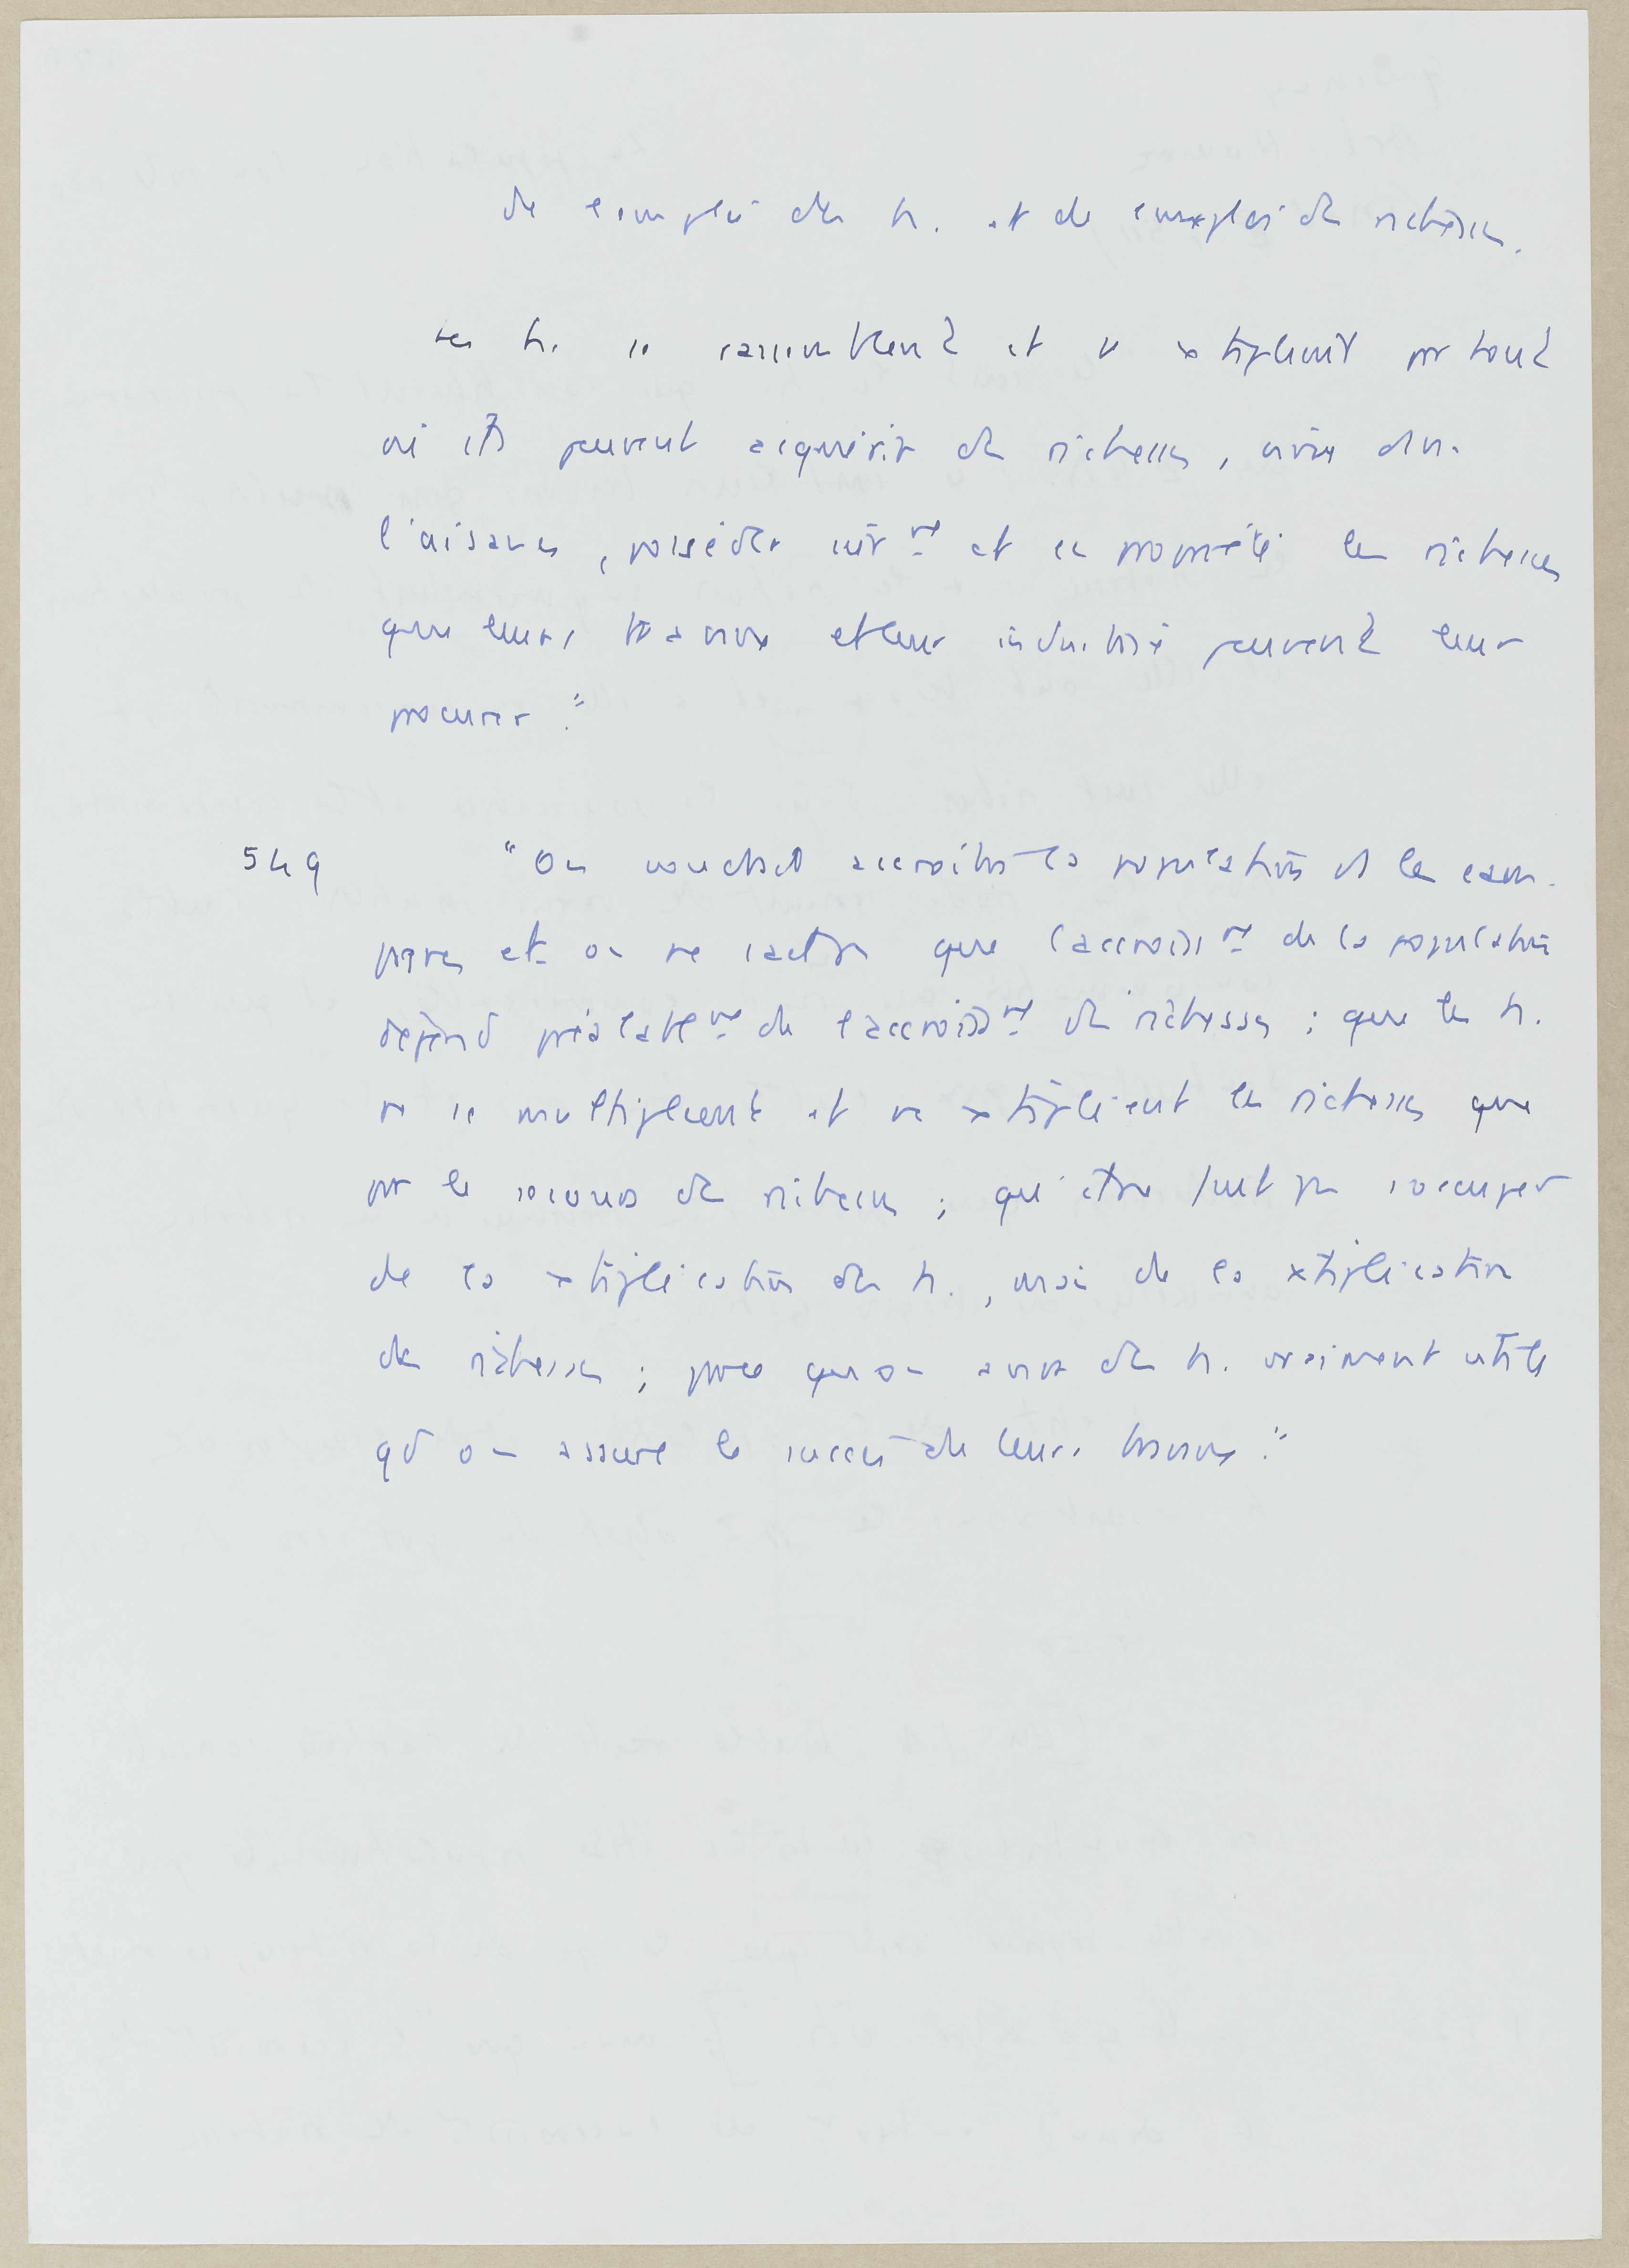 de l'emploi des h. et de l'emploi des richesses.
Les h. se rassemblent et se xtiplient par tout
où ils peuvent acquérir des richesses, vivre dns
l'aisance, posséder sûrmt et en propriété les richesses
que leurs travaux et leur industrie peuvent leur
procurer."
549 "On voudrait accroître la population ds les cam-
pagnes et on ne sait pas que l'accroissmt de la population
dépend préalablemt de l'accroissmt des richesses ; que les h.
ne se multiplient et ne xtiplient les richesses que
par le secours des richesses ; qu'
de la xtiplication des h., mais de la xtiplication
des richesses ; parce qu'on aura des h. vraiment utiles
qd on assure le succès de leurs travaux."